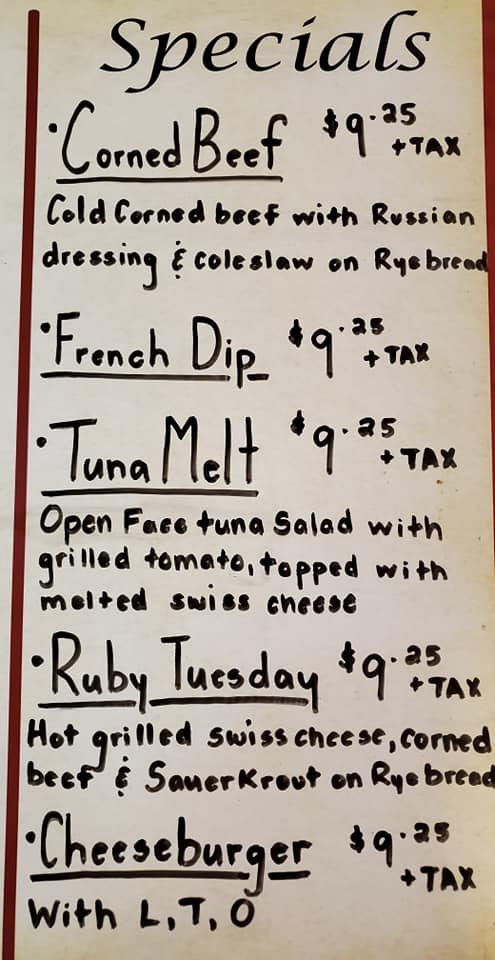 Specials
• Corned Beef $9.25 + TAX
Cold Corned beef with Russian
dressing & coleslaw on Rye bread
• French Dip $9.25 + TAX
• Tuna Melt $9.25 + TAX
Open Face tuna Salad with
grilled tomato, topped with
melted swiss cheese
• Ruby Tuesday $9.25 + TAX
Hot grilled swiss cheese, corned
beef & SauerKrout on Rye bread
• Cheeseburger $9.25 + TAX
With L, T, O